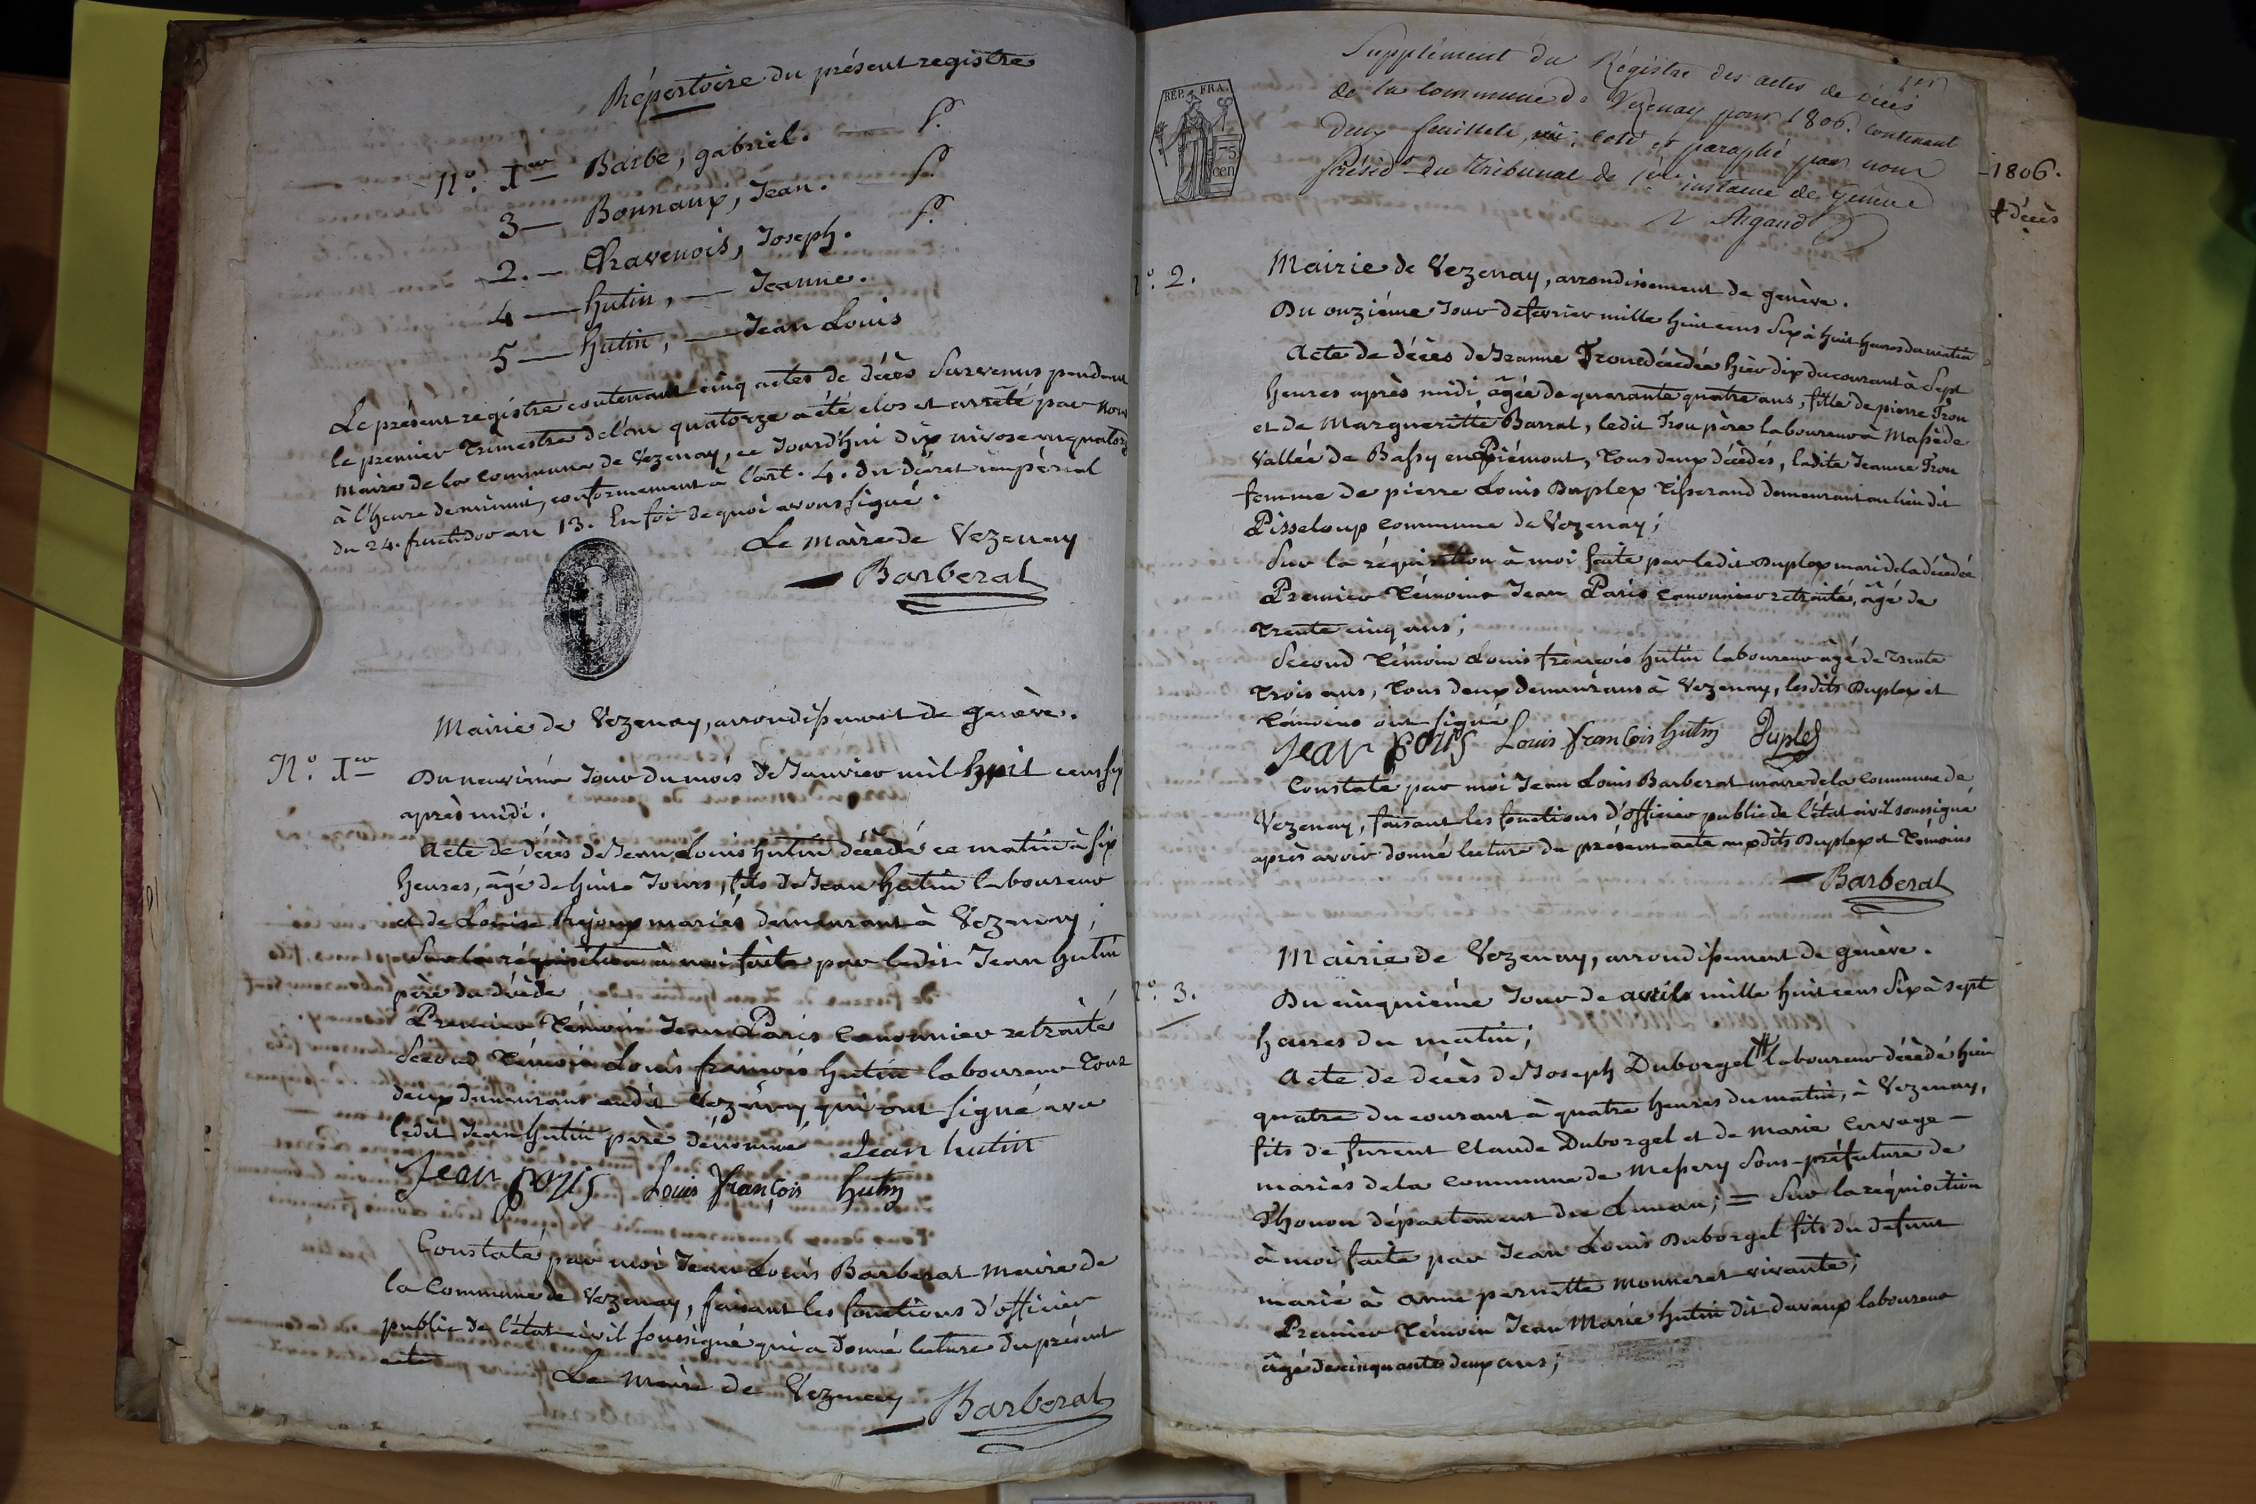 Répertoire du présent registre
N.º Ier Barbe, gabriel. — f.
3 — Bonnaux, Jean. — f.
2. — Chavenois, Joseph. f.
4 — hutin, — Jeanne.
5 — hutin, — Jean Louis
Le présent registre contenant cinq actes de décès Survenus pendant
le premier trimestre de l'an quatorze a été clos et arrêté par nous
Maire de la Commune de Vezenay, ce Jourd'hui dix nivose an quatorze
à l'heure de minuit, conformement à l'art. 4. du décret impérial
du 24. fructidor an 13. En foi de quoi avons signé.
Le Maire de Vezenay
Barberat
Mairie de Vezenay, arrondissement de genève.
N.º Ier Du neuvième Jour du mois de Janvier mil huit cens six
après midi.
Acte de décès de Jean Louis hutin décédé ce matin à six
heures, âgé de huit Jours, fils de Jean hutin laboureur
et de Louise mariés demeurant à Vezenay;
Sur la réquisition à moi faite par ledit Jean hutin
père du décédé
Premier témoin Jean Paris canonnier retraité
Second témoin Louis françois hutin laboureur tous
deux demeurans audit Vezenay qui ont signé avec
ledit Jean hutin père dénommé Jean hutin
Jean paris Louis françois hutin
Constaté par moi Jean Louis Barberat Maire de
la Commune de Vezenay, faisant les fonctions d'officier
public de l'état civil soussigné qui a donné lecture du présent
acte
Le Maire de Vezenay Barberat
Supplément du Régistre des actes de décès
de la commune de Vezenay pour 1806. contenant
deux feuillets, coté et paraphé par nous
Présid.t du Tribunal de 1ère instance de Genève
Argand
1er
REP. FRA.
5
cen
1806.
décès
N.º 2. Mairie de Vezenay, arrondissement de genève.
Du onzième Jour de fevrier mille huit cens Six à huit heures du matin
Acte de décès de Jeanne Tron décédée hier dix du courant à Sept
heures après midi, âgée de quarante quatre ans, fille de pierre Tron
et de Margueritte Barral, ledit Tron père laboureur à Massède
Vallée de Bassy en Piémont, tous deux décédés, ladite Jeanne Tron
femme de pierre Louis Duplex tisserand demeurant au lieu dit
Pisseloup Commune de Vezenay;
Sur la réquisition à moi faite par ledit Duplex mari de la décédée
Premier témoin Jean Paris canonnier retraité, âgé de
trente cinq ans;
Second témoin Louis françois hutin laboureur âgé de trente
trois ans, tous deux demeurans à Vezenay, lesdits Duplex et
témoins ont signé
Jean paris Louis françois hutin Duplex
Constaté par moi Jean Louis Barberat maire de la Commune de
Vezenay, faisant les fonctions d'officier public de l'état civil soussigné
après avoir donné lecture du présent acte auxdits Duplex et témoins
Barberat
Mairie de Vezenay, arrondissement de genève.
N.º 3. Du cinquième Jour de avril mille huit cens Six à sept
heures du matin;
Acte de décès de Joseph Duborgel laboureur décédé hier
quatre du courant à quatre heures du matin, à Vezenay,
fils de furent Claude Duborgel et de Marie —
mariés de la Commune de Messery Sous-préfecture de
Thonon département du Leman; = Sur la réquisition
à moi faite par Jean Louis Duborgel fils du défunt
marié à anne pernette Monneret vivante;
Premier témoin Jean Marie hutin dit davaux laboureur
âgé de cinquante deux ans;